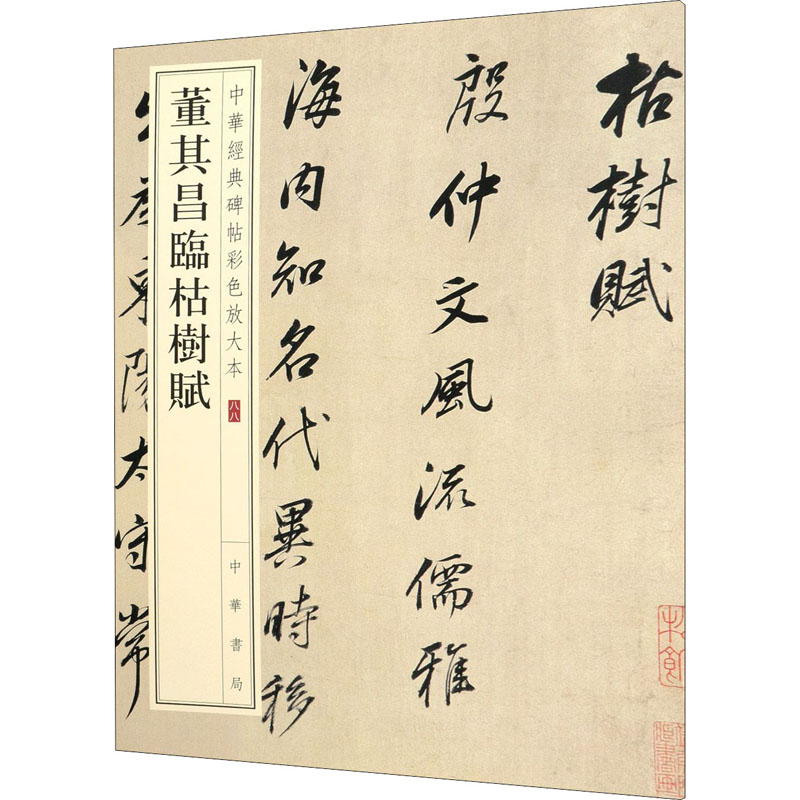 枯樹賦
殷仲文風流儒雅
海内知名代異時移
出為東陽太守常
中華經典碑帖彩色放大本
八八
中華書局
董其昌臨枯樹賦